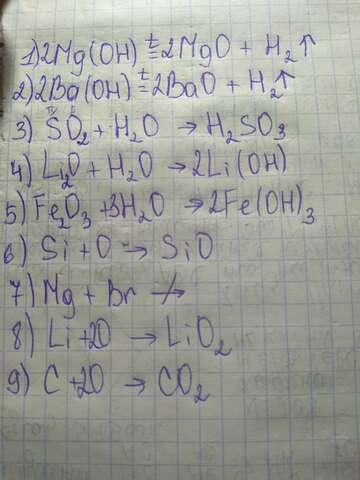 1) 2Mg(OH) t= 2MgO + H2↑
2) 2Ba(OH) t= 2BaO + H2↑
3) SO2 + H2O → H2SO3
4) Li2O + H2O → 2Li(OH)
5) Fe2O3 + 3H2O → 2Fe(OH)3
6) Si + O → SiO
7) Mg + Br ↛
8) Li + 2O → LiO2
9) C + 2O → CO2